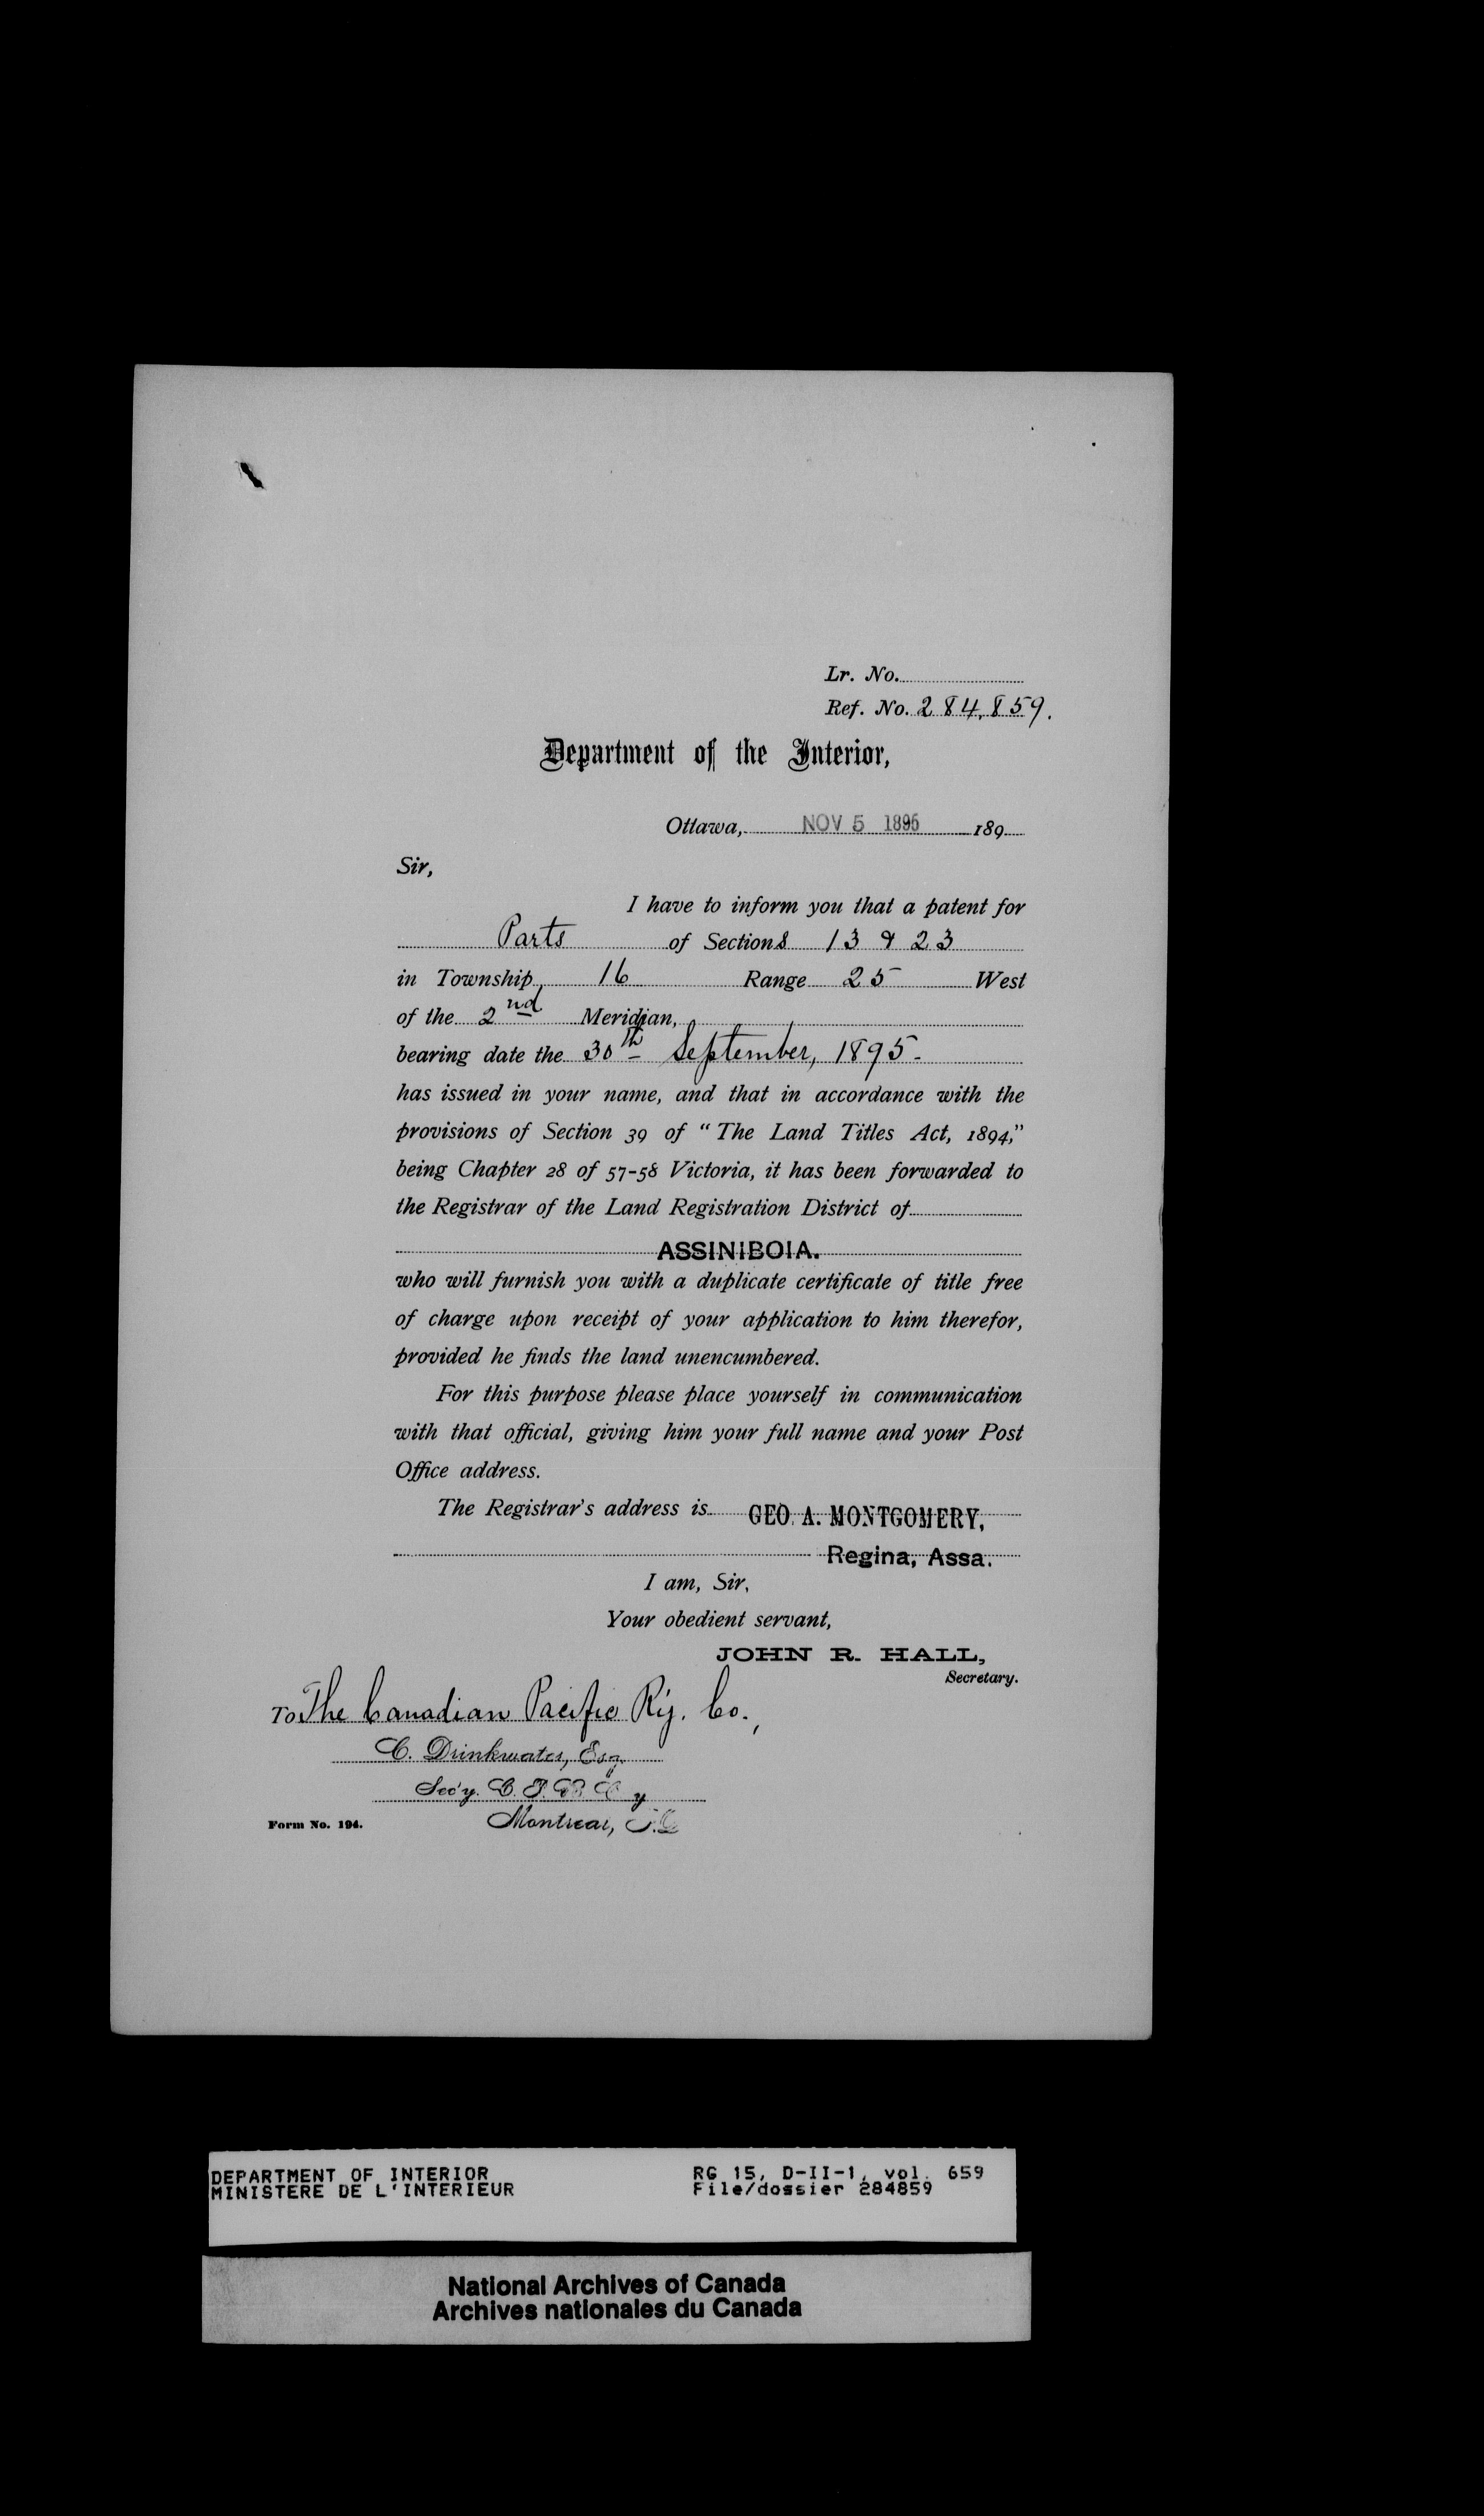 Lr. No.
Ref. No. 284,859.
Department of the Interior,
Ottawa, NOV 5 1895 189
Sir,
I have to inform you that a patent for
Parts of Sections 13 & 23
in Township 16 Range 25 West
of the 2nd Meridian,
bearing date the 30th September, 1895.
has issued in your name, and that in accordance with the
provisions of Section 39 of "The Land Titles Act, 1894,"
being Chapter 28 of 57-58 Victoria, it has been forwarded to
the Registrar of the Land Registration District of
ASSINIBOIA.
who will furnish you with a duplicate certificate of title free
of charge upon receipt of your application to him therefor,
provided he finds the land unencumbered.
For this purpose please place yourself in communication
with that official, giving him your full name and your Post
Office address.
The Registrar's address is GEO. A. MONTGOMERY,
Regina, Assa.
I am, Sir,
Your obedient servant,
JOHN R. HALL,
Secretary.
To The Canadian Pacific Ry. Co.,
C. Drinkwater, Esq.
Sec'y. C. P. R. Cy
Form No. 194. Montreal,
DEPARTMENT OF INTERIOR RG 15, D-II-1, vol. 659
MINISTERE DE L'INTERIEUR File/dossier 284859
National Archives of Canada
Archives nationales du Canada